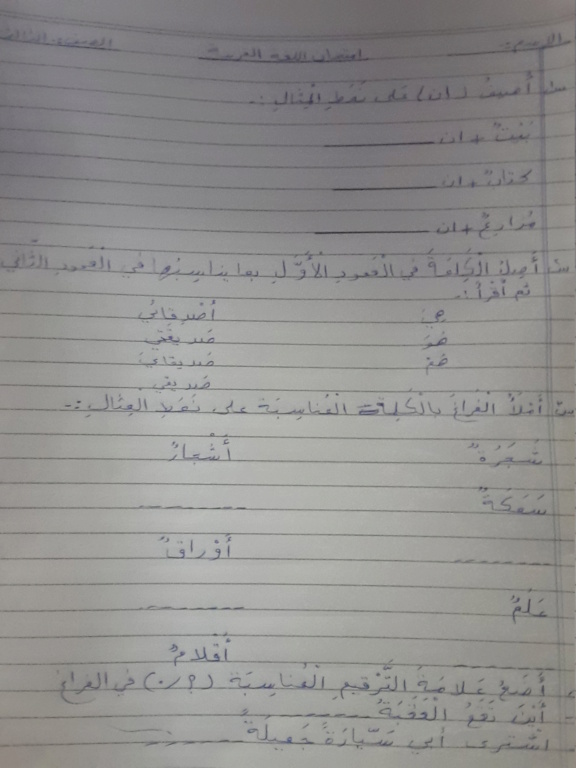 الاسم:- امتحان اللغة العربية الصف: الثالث
س: أضيفُ (ان) على نَمَطِ الْمِثالِ :-
بَيْتٌ + ان ________
كتابٌ + ان ________
مُزارِعٌ + ان ________
س: أَصِلُ الْكَلِمَةَ في الْعَمودِ الْأَوَّلِ بِما يُناسِبُها في الْعَمودِ الثّاني
ثم أقْرأ :-
هِيَ أَصْدِقائي
هُوَ صَديقَتي
هُمْ صَديقاتي
صَديقي
س: أَمْلَأُ الْفَراغَ بِالْكَلِمَةِ الْمُناسِبَةِ على نَمَطِ المِثالِ :-
شَجَرَةٌ أَشْجارٌ
سَمَكَةٌ --------
-------- أَوْراقٌ
عَلَمٌ --------
-------- أَقْلامٌ
أَضَعُ عَلامَةَ التَّرْقيمِ الْمُناسِبَةَ (؟/.) في الفراغ
- أَيْنَ تَقَعُ الْعَقَبَةُ --------
- اشْتَرى أبي سَيّارَةً جَميلَةً --------